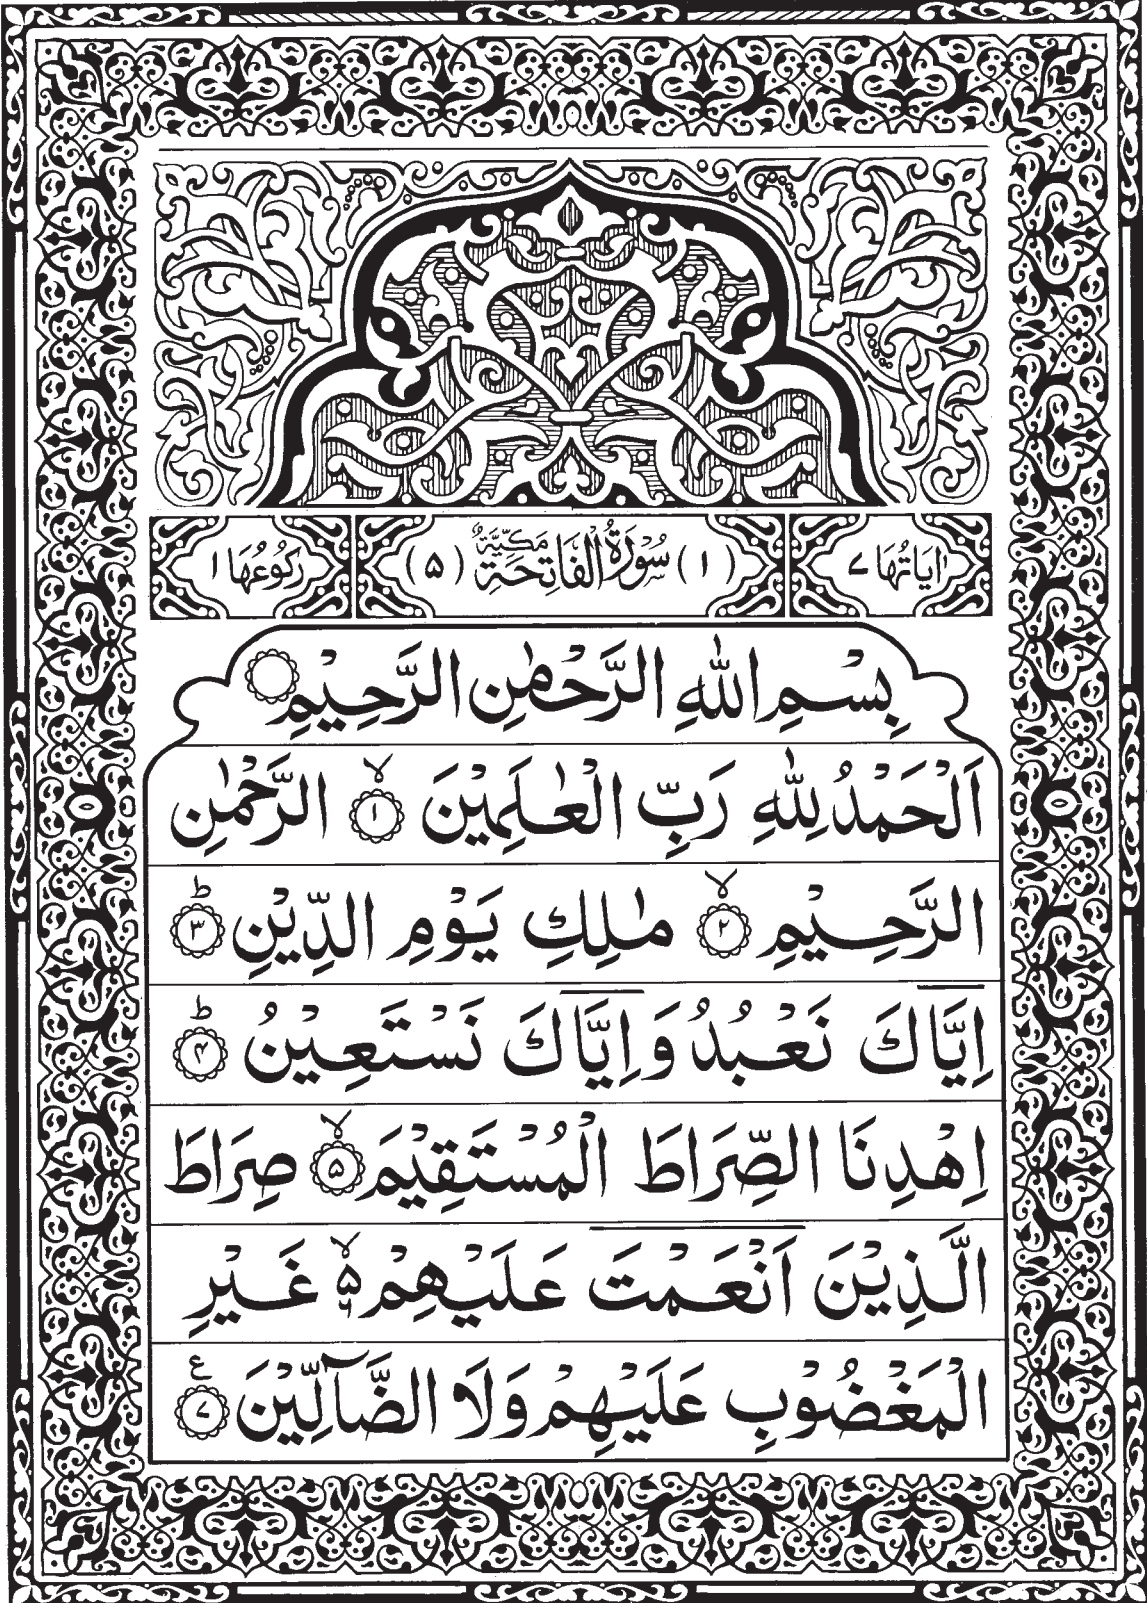 اٰيَاتُهَا ٧ (١) سُوْرَةُ الْفَاتِحَةِ مَكِّيَّةٌ (٥) رُكُوْعُهَا ١
بِسْمِ اللّٰهِ الرَّحْمٰنِ الرَّحِيْمِ ۝
اَلْحَمْدُ لِلّٰهِ رَبِّ الْعٰلَمِيْنَ ۙ‏﴿۱﴾ الرَّحْمٰنِ
الرَّحِيْمِ ۙ‏﴿۲﴾ مٰلِكِ يَوْمِ الدِّيْنِ ؕ‏﴿۳﴾
اِيَّاكَ نَعْبُدُ وَ اِيَّاكَ نَسْتَعِيْنُ ؕ‏﴿۴﴾
اِهْدِنَا الصِّرَاطَ الْمُسْتَقِيْمَ ۙ‏﴿۵﴾ صِرَاطَ
الَّذِيْنَ اَنْعَمْتَ عَلَيْهِمْ ۙ۵ ٦ غَيْرِ
الْمَغْضُوْبِ عَلَيْهِمْ وَلَا الضَّآلِّيْنَ ﴿۷﴾ ع